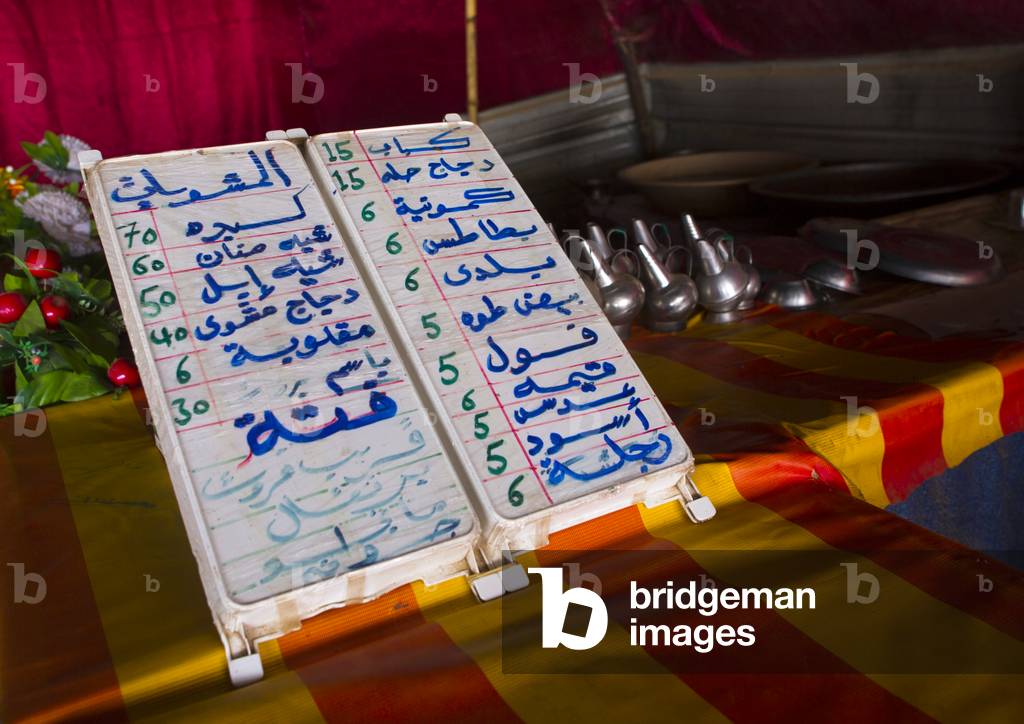 المشويات
كبده 70
شيه ضان 60
شيه إبل 50
دجاج مشوى 40
مقلوبة 6
باسم 30
فتة
كباب 15
دجاج حله 15
كمونية 6
بطاطس 6
بلدى 6
بيض طوه 5
فول 5
قيمه 6
عدس 5
أسود 5
رجلة 6
bridgeman images